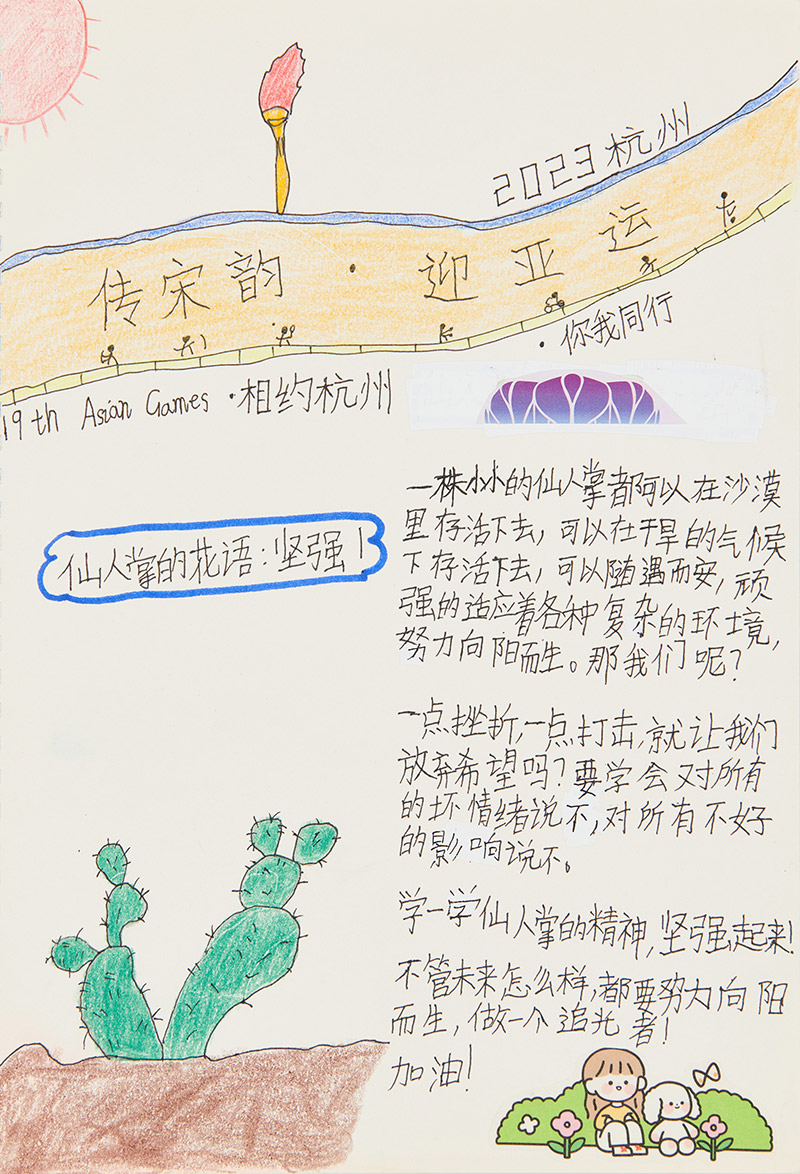 2023杭州
传宋韵·迎亚运
·你我同行
19th Asian Games ·相约杭州
仙人掌的花语:坚强!
一株小小的仙人掌都可以在沙漠
里存活下去，可以在干旱的气候
下存活下去，可以随遇而安，顽
强的适应着各种复杂的环境，
努力向阳而生。那我们呢？
一点挫折，一点打击，就让我们
放弃希望吗？要学会对所有
的坏情绪说不，对所有不好
的影响说不。
学一学仙人掌的精神，坚强起来!
不管未来怎么样，都要努力向阳
而生，做一个追光者!
加油!